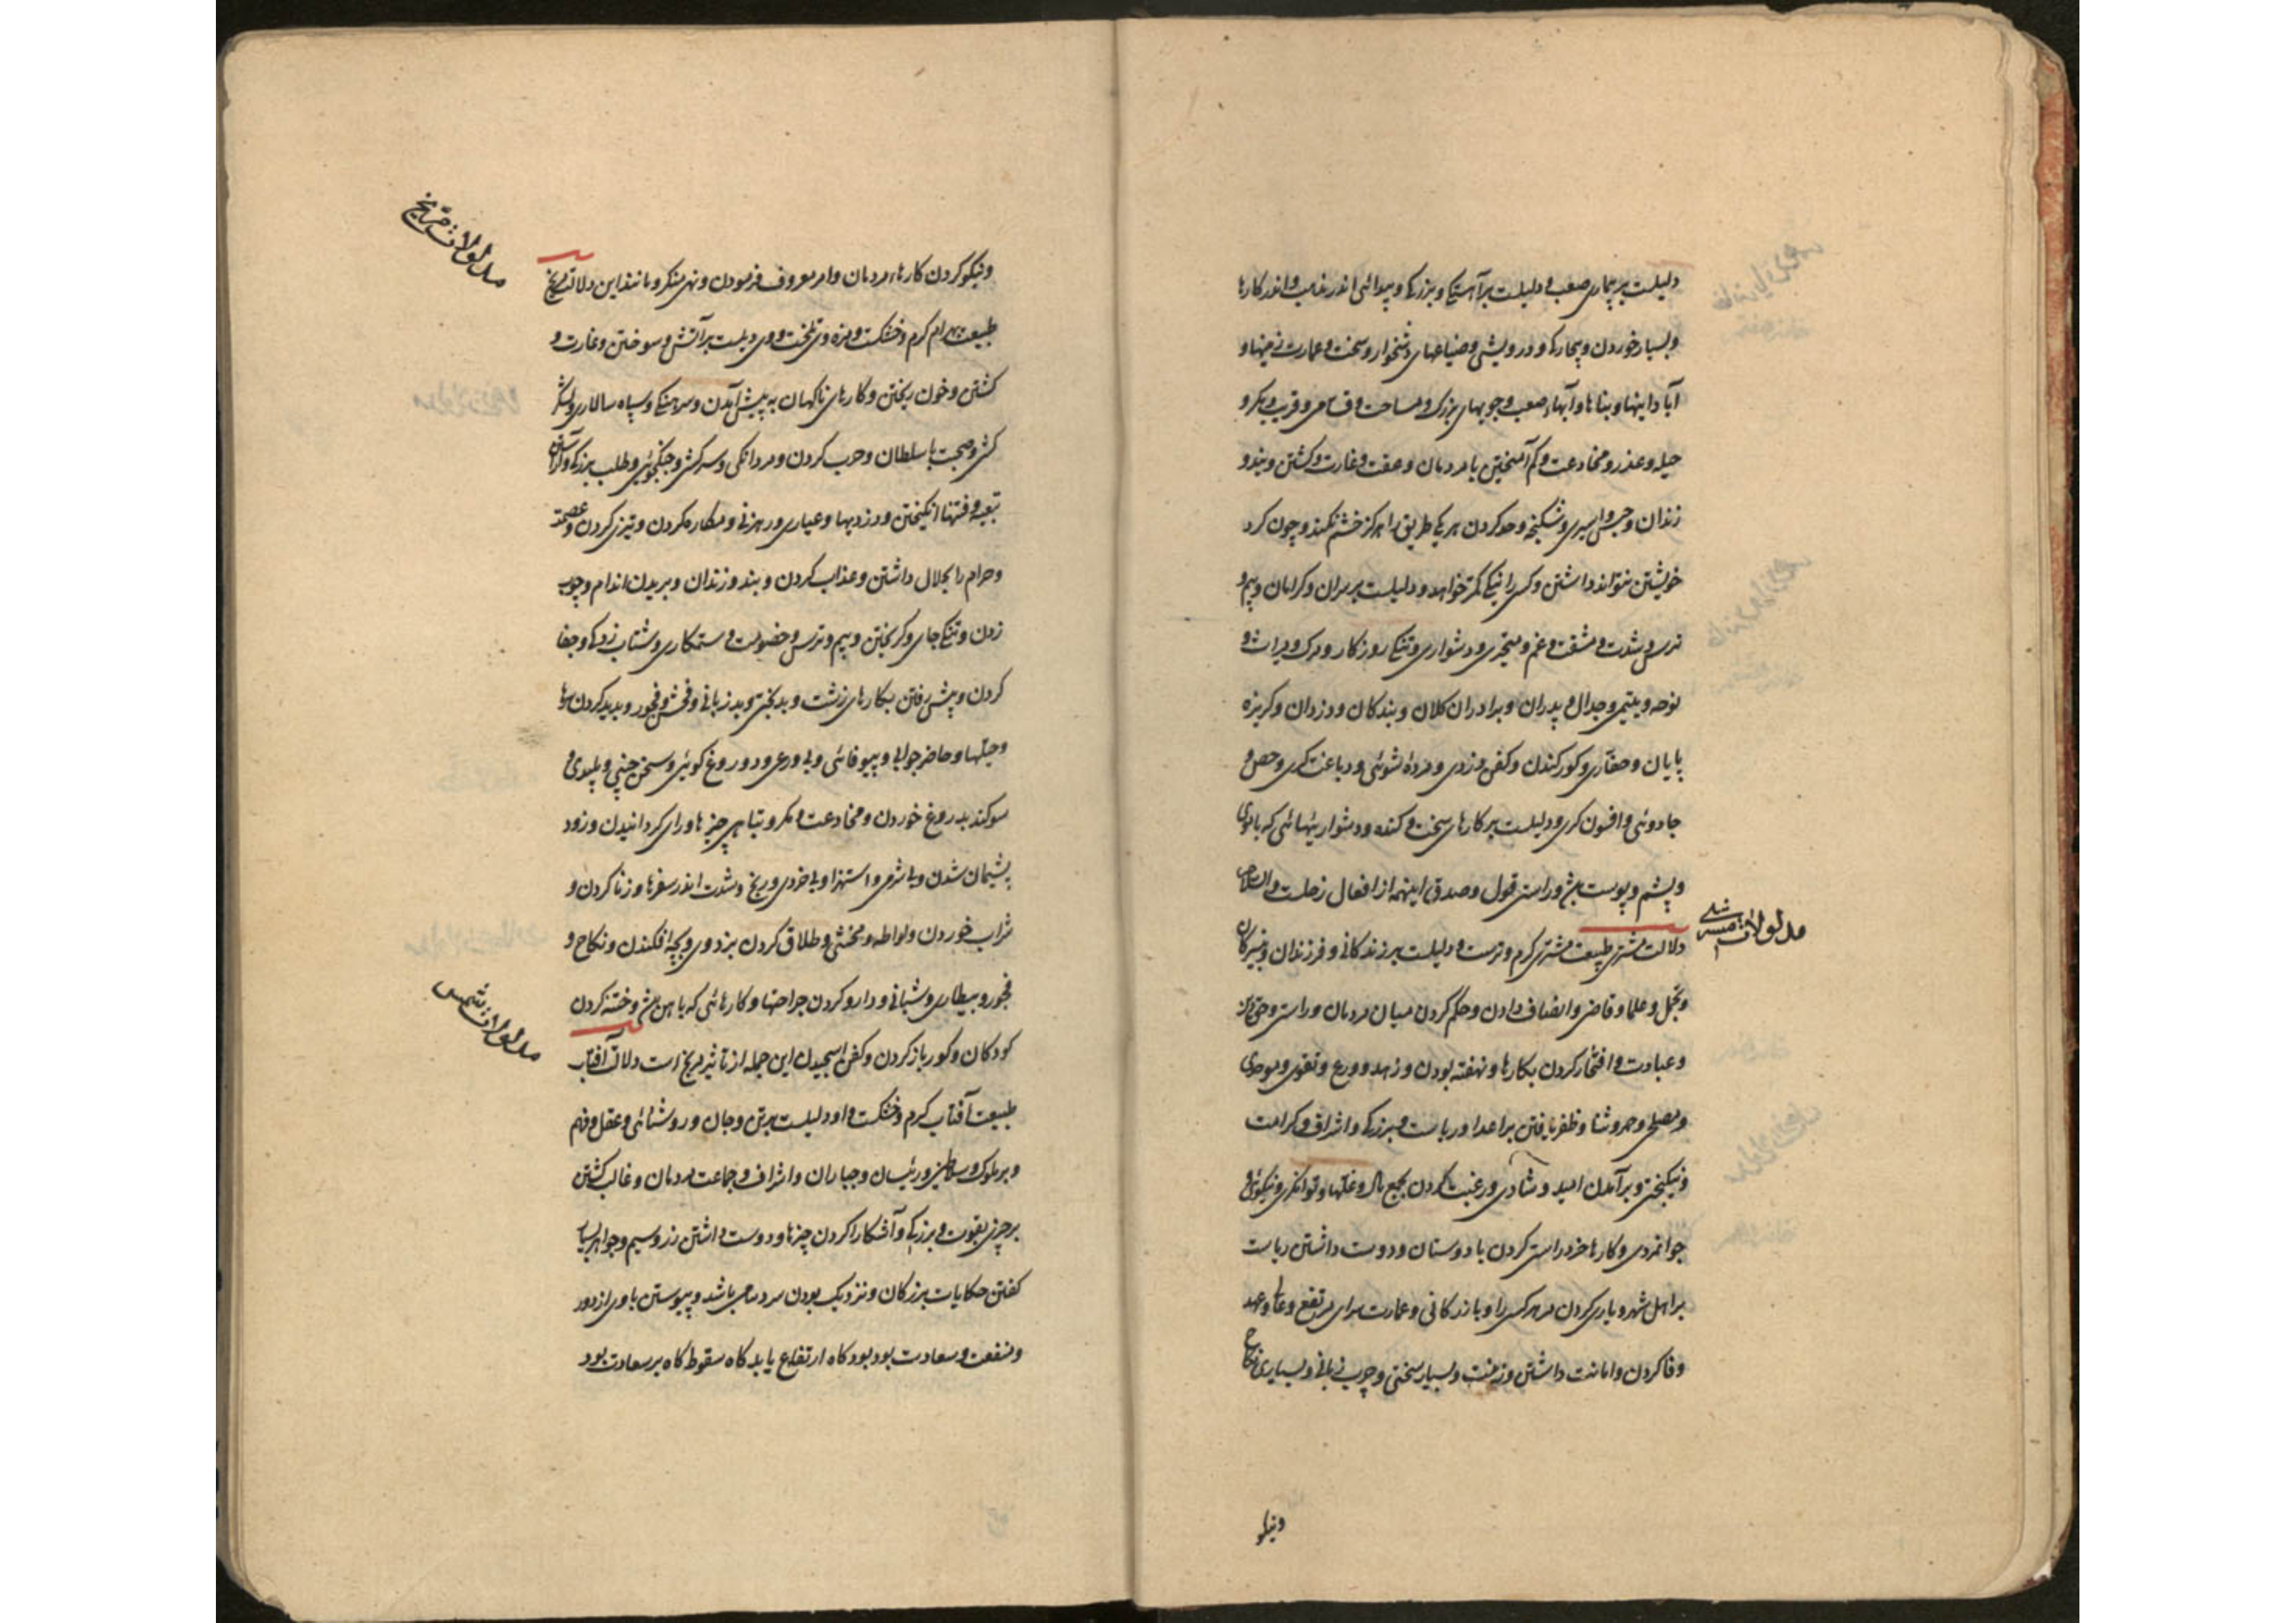 دلیلست بر بیماری صعب و دلیلست بر آهستکی و بزرکی و پیدائی اندر غایب و اندر کارها
و بسیار خوردن و بیچارکی و درویشی و ضیاعهای دشخوار و سخت و عمارت زمینها و
آبادانیها و بناها و آبهاء صعب و جویهای بزرک و مساحت و قسامی و فریب و مکر و
حیله و عذر و مخادعت و کم آمیختن با مردمان و عفت و غارت و کشتن و بند و
زندان و حبس و اسیری و شکنجه و حد کردن هر یکی طریق را هرکز خشم نکند و چون کرد
خویشتن نتواند داشتن و کس را نیکی کمتر خواهد و دلیلست بر پیران و کرانان و بیم و
ترس و شدت و مشقت و غم و متحیری و دشواری و تنکی روزکار و مرک و میراث و
نوحه و یتیمی و جدال و پدران و برادران کلان و بندکان و دزدان و کریزه
پایان و حفاری و کور کندن و کفن دزدی و مرده شوئی و دباغت کری و
جادوئی و افسون کری و دلیلست بر کارهای سخت و کنده و دشواریهائی که با بوی
و پشم و پوست بش و راستی قول و صدق اینهمه از افعال زحلست والسلام
مدلولات مشتری
دلالت مشتری طبیعت مشتری کرم و ترست و دلیلست بر زندکانی و فرزندان و نبیرکان
و تجمل و علما و قاضی و انصاف دادن و حکم کردن میان مردمان و راستی و
و عبادت و افتخار کردن بکارها و نهفته بودن و زهد و ورع و تقوی و موحدی
و مصلحی و حمد و ثنا و ظفر یافتن بر اعدا و ریاست و بزرکی و اشراف و کرامت
و نیکبختی و برآمدن امید و شادی و رغبت کردن بجمع مال و غلتها و توانکری و نیکوئی و
جوانمردی و کارها خرد راستی کردن با دوستان و دوست داشتن ریاست
بر اهل شهر و یاری کردن مر هر کسی را و بازرکانی و عمارت سرای مرتفع و عالی و عهد
وفا کردن و امانت داشتن و زینت و بسیار سخنی و چرب زبانی و بسیاری نکاح
و نیکو
مدلولات مریخ
و نیکو کردن کارهاء مردمان و امر معروف فرمودن و نهی منکر و مانند این دلالت مریخ
طبیعت بهرام کرم و خشکست و مزه وی تلخست و وی دلیلست بر آتش و سوختن و غارت و
کشتن و خون ریختن و کارهای ناکهان به پیش آمدن و سرهنکی و سپاه سالاری و لشکر
کشی و صحبت با سلطان و حرب کردن و مردانکی و سرکشی و جنکجوئی و طلب بزرکی و
تعبیه و فتنها انکیختن و دزدیها و عیاری و رهزنی و مکابره کردن و تیزی کردن
و حرام را بحلال داشتن و عذاب کردن و بند و زندان و بریدن اندام و چوب
زدن و تنکی جای و کریختن و بیم و ترس و خصومت و ستمکاری و شتاب زدکی و جفا
کردن و پیش رفتن بکارهای زشت و بدبختی و بد زبانی و فحش و فجور و پدید کردن
و حیلها و حاضر جوابی و بیوفائی و بی ورعی و دروغ کوئی و سخن چینی و پلیدی و
سوکند بدروغ خوردن و مخادعت و مکر و تباهی چیزها و رای کردانیدن و زود
پشیمان شدن و بی شرمی و استهزا و بی خردی و رنج و شدت اندر سفرها و زنا کردن و
شراب خوردن و لواطه و مخنثی و طلاق کردن بزودی و بچه افکندن و نکاح و
فجور و بیطاری و شبانی و دارو کردن جراحتها و کارهائی که باهن بش و ختنه کردن
کودکان و کور باز کردن و کفن این جمله از تاثیر مریخ است دلالت آفتاب
مدلولات شمس
طبیعت آفتاب کرم و خشکست و او دلیلست بر تن و جان و روشنائی و عقل و فهم
و بر ملوک و سلاطین و رئیسان و جباران و اشراف و جماعت مردمان و غالب کشتن
بر چیزی بقوت و بزرکی و آشکارا کردن چیزها و دوست داشتن زر و سیم و جواهر بسیار
کفتن حکایات بزرکان و نزدیک بودن مردمان باشد و پیوستن با وی از دور
و منفعت و سعادت بود بود کاه ارتفاع یابد کاه سقوط کاه بر سعادت بود